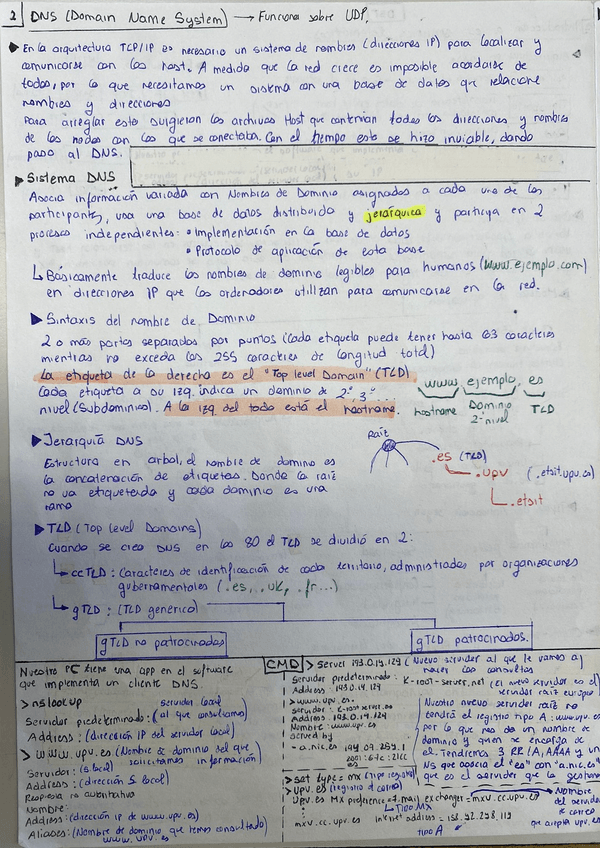 2 DNS (Domain Name System) → Funciona sobre UDP.
▶ En la arquitectura TCP/IP es necesario un sistema de nombres (direcciones IP) para localizar y
comunicarse con los host. A medida que la red crece es imposible acordarse de
todos, por lo que necesitamos un sistema con una base de datos que relacione
nombres y direcciones
Para arreglar esto surgieron los archivos Host que contenían todas las direcciones y nombres
de los nodos con los que se conectaba. Con el tiempo esto se hizo inviable, dando
paso al DNS.
▶ Sistema DNS
Asocia información variada con Nombres de Dominio asignados a cada uno de los
participantes, usa una base de datos distribuida y jerárquica y participa en 2
procesos independientes: • Implementación en la base de datos
• Protocolo de aplicación de esta base
↳ Básicamente traduce los nombres de dominio legibles para humanos (www.ejemplo.com)
en direcciones IP que los ordenadores utilizan para comunicarse en la red.
▶ Sintaxis del nombre de Dominio
2 o más partes separadas por puntos (Cada etiqueta puede tener hasta 63 caracteres
mientras no exceda los 255 caracteres de longitud total)
La etiqueta de la derecha es el "Top level Domain" (TLD)
Cada etiqueta a su izq. indica un dominio de 2º, 3º...
nivel (Subdominios). A la izq del todo está el hostname.
www.ejemplo.es
hostname Dominio 2º nivel TLD
▶ Jerarquía DNS
Estructura en arbol, el nombre de dominio es
la concatenación de etiquetas. Donde la raíz
no va etiquetada y cada dominio es una
rama
raíz
.es (TLD)
.upv (.etsit.upv.es)
.etsit
▶ TLD (Top level Domains)
Cuando se creó DNS en los 80 el TLD se dividió en 2:
↳ ccTLD: Caracteres de identificación de cada territorio, administrados por organizaciones
gubernamentales (.es, .uk, .fr...)
↳ gTLD: (TLD genérico)
gTLD no patrocinados gTLD patrocinados.
CMD
Nuestro PC tiene una app en el software
que implementa un cliente DNS
> nslookup
Servidor predeterminado: (servidor local al que consultamos)
Address: (dirección IP del servidor local)
> www.upv.es (Nombre de dominio del que
solicitamos información)
Servidor: (S local)
Address: (dirección S local)
Respuesta no autoritativa
Nombre:
Address: (dirección ip de www.upv.es)
Aliases: (Nombre de dominio que hemos consultado)
www.upv.es
> server 193.0.14.129 (Nuevo servidor al que le vamos a
hacer las consultas
Servidor predeterminado: K-root-server.net (el nuevo servidor es el
servidor raíz europeo
Address: 193.0.14.129
> www.upv.es.
servidor: K-root-server.net
Address: 193.0.14.129
Nombre: www.upv.es
served by
- a.nic.es
Nuestro nuevo servidor raíz no
tendrá el registro tipo A: www.upv.es
por lo que nos da un nombre de
dominio y quien se encarga de
él. Tendremos 3 RR (A, AAAA y un
NS que asocia el "es" con "a.nic.es"
que es el servidor que lo gestiona
> set type = mx (tipo registro)
> upv.es (registro d correo)
upv.es MX preference = 7, mail exchanger = mxv.cc.upv.es
↳ Tipo MX
Nombre
del servidor
de correo
que acepta upv.es
mxv.cc.upv.es internet address = 158.42.298.119
tipo A